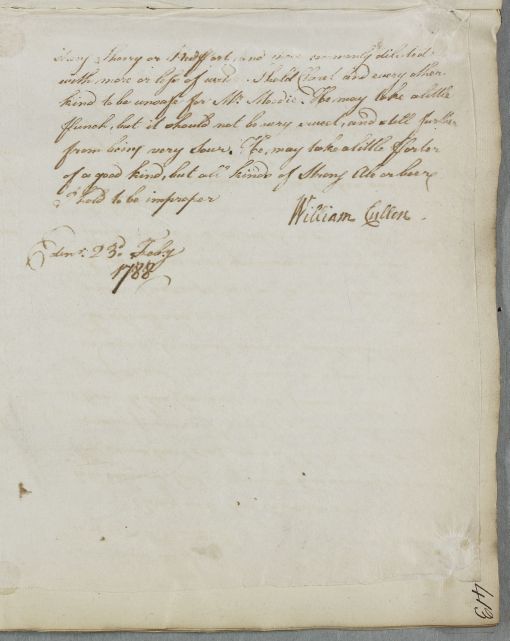 Sherry or Port, and more commonly diluted
with more or less of water. I hold Claret and every other
kind to be unsafe for Mr. Moodie. He, may take a little
Punch, but it should not be very sweet, and still farther
from being very sour. He, may take a little Porter
of a good kind, but all kinds of Strong Ale or beer
I hold to be improper
William Cullen.
Edinr. 23d. Feby
1788
413